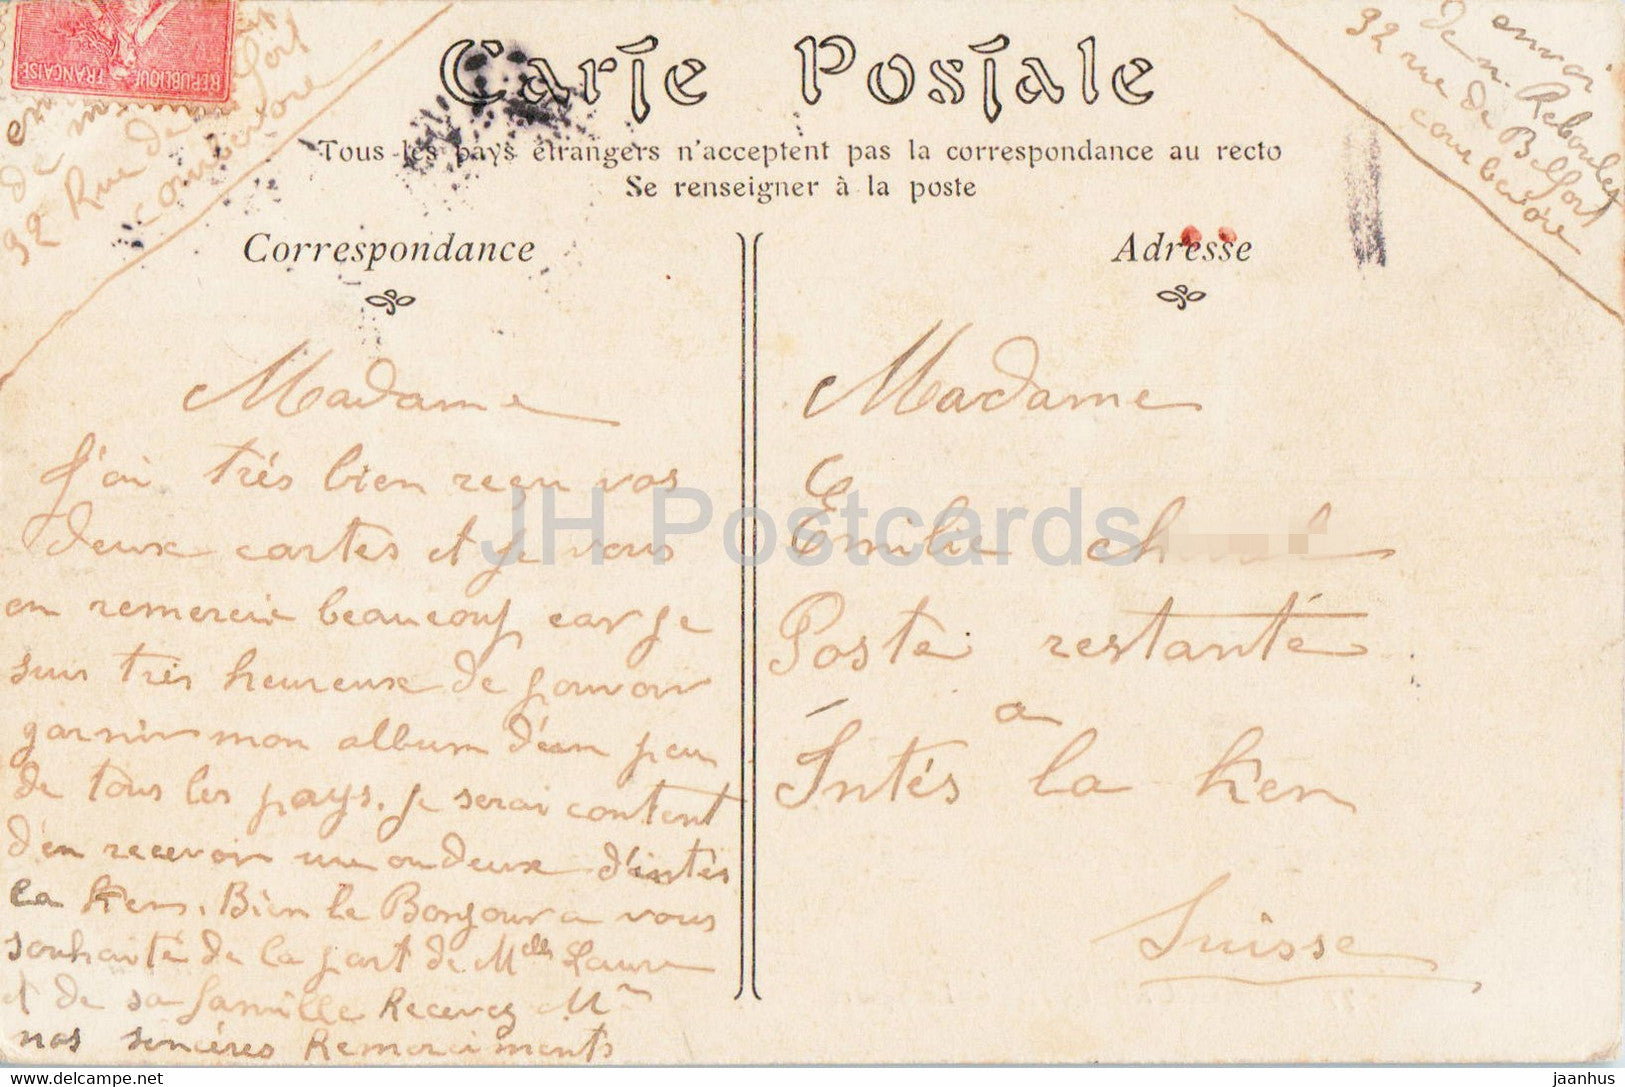 REPUBLIQUE FRANÇAISE
en
de m
92 Rue de Belfort
courbevoie
Carte Postale
Tous les pays étrangers n'acceptent pas la correspondance au recto
Se renseigner à la poste
envoi
de m. Reboulet
92 rue de Belfort
courbevoie
Correspondance
Madame
J'ai très bien reçu vos
deux cartes et je vous
en remercie beaucoup car je
suis très heureuse de pouvoir
garnir mon album d'un peu
de tous les pays. je serai content
d'en recevoir une ou deux d'intés
la Ken. Bien le Bonjour a vous
souhaité de la part de Melle Laure
et de sa famille Recevez Mm
nos sincéres Remerciments
Adresse
Madame
Emilie ch
Poste restanté
a
Intés la Ken
Suisse
JH Postcards
delcampe.net
jaanhus